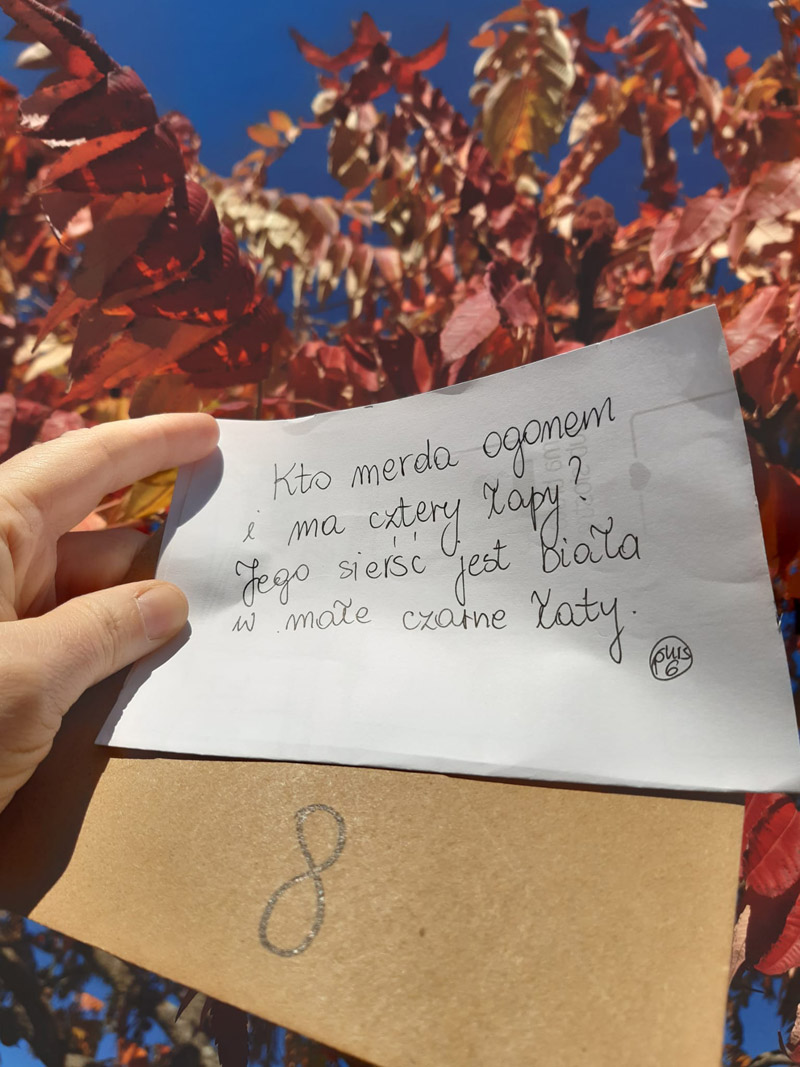 Kto merda ogonem
i ma cztery łapy?
Jego sierść jest biała
w małe czarne łaty.
6
8